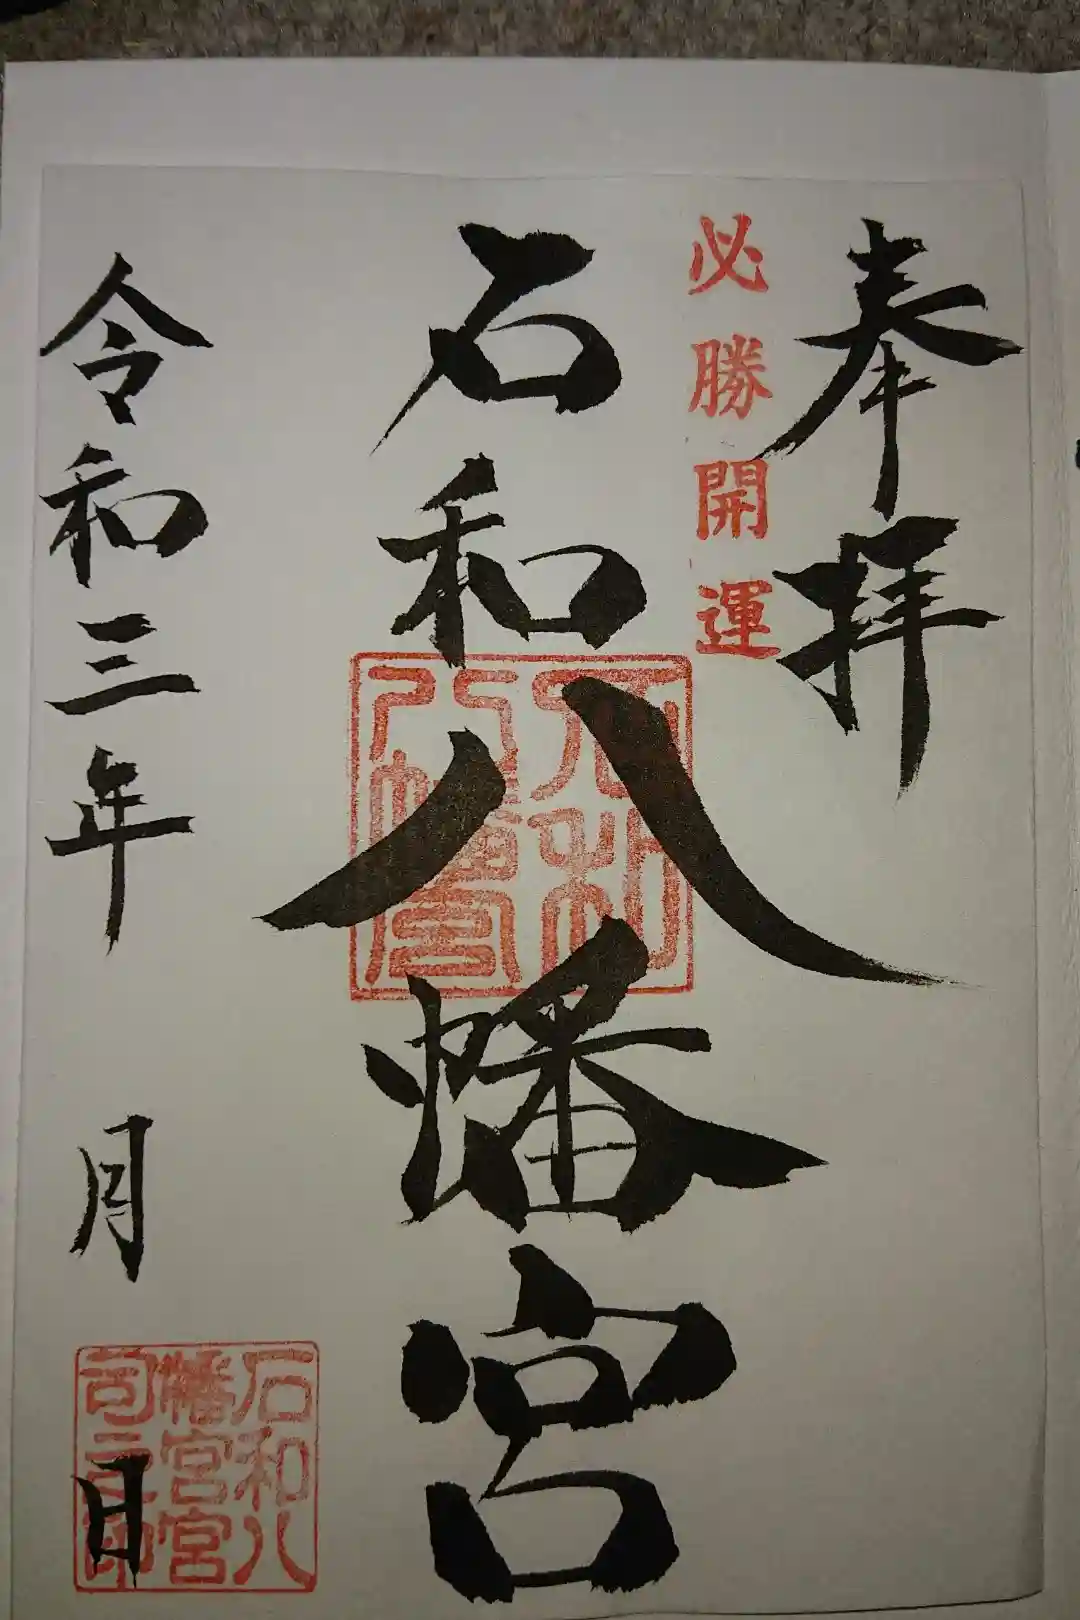 奉拝
必勝開運
石和八幡宮
石和八幡宮
令和三年 月 日
石和八
幡宮宮
司之印